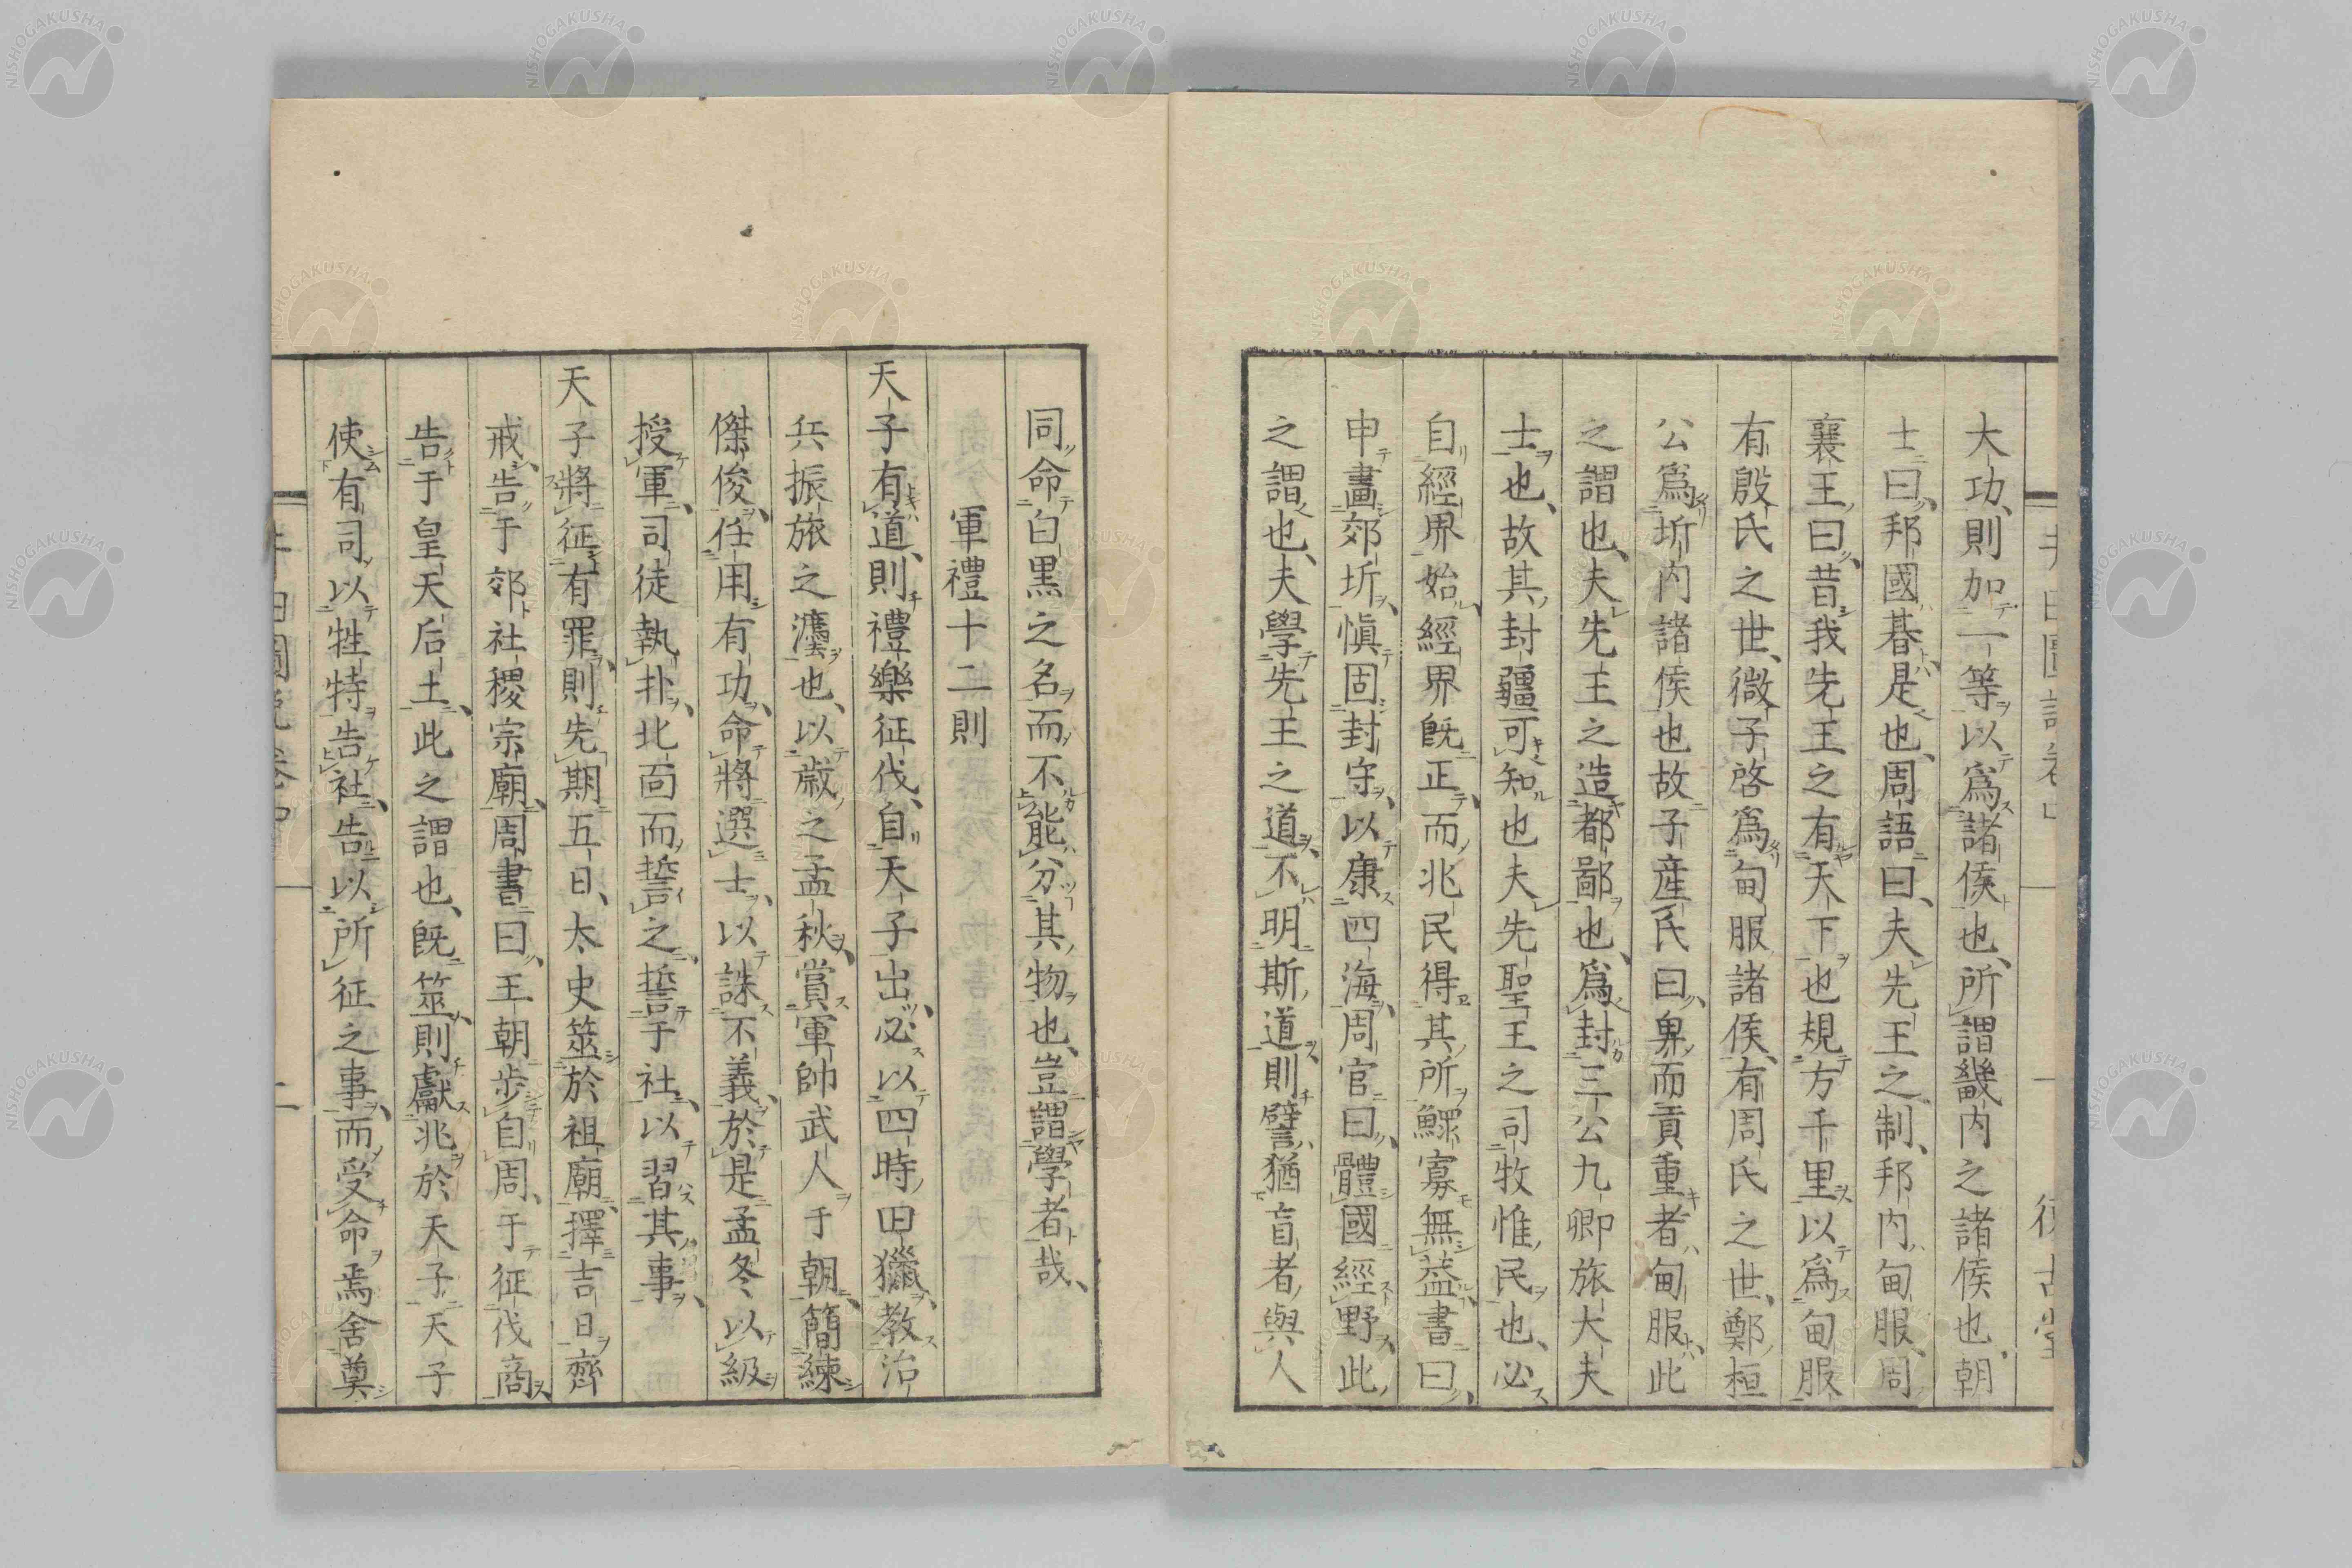 大功、則加一等以爲諸侯也、所謂畿内之諸侯也、朝
士曰、邦國朞是也、周語曰、夫先王之制、邦内甸服、周
襄王曰、昔我先王之有天下也規方千里以爲甸服
有殷氏之世、微子啓爲甸服諸侯、有周氏之世、鄭桓
公爲圻内諸侯也故子產氏曰、卑而貢重者甸服、此
之謂也、夫先王之造都鄙也、爲封三公九卿旅大夫
士也、故其封疆可知也夫先聖王之司牧惟民也、必
自經界始、經界既正、而兆民得其所、鰥寡無益書曰、
申畫郊圻、愼固封守、以康四海、周官曰、體國經野、此
之謂也、夫學先王之道、不明斯道、則譬猶盲者、與人
同命白黒之名而不能分其物也、豈謂學者哉、
軍禮十二則
天子有道、則禮樂征伐、自天子出、必以四時田獵、教治
兵振旅之灋也、以歳之孟秋、賞軍帥武人于朝、簡練
傑俊、任用有功、命將選士、以誅不義、於是孟冬以級
授軍、司徒執扑、北面而誓之、誓于社、以習其事、
天子將征有罪、則先期五日、太史筮於祖廟、擇吉日齊
戒、告于郊社稷宗廟、周書曰、王朝步自周、于征伐商
告于皇天后土、此之謂也、既筮、則獻兆於天子天子
使有司以牲特告社、告以所征之事、而受命焉舍奠
井田圖説卷四
一
復古堂
二
NISHOGAKUSHA